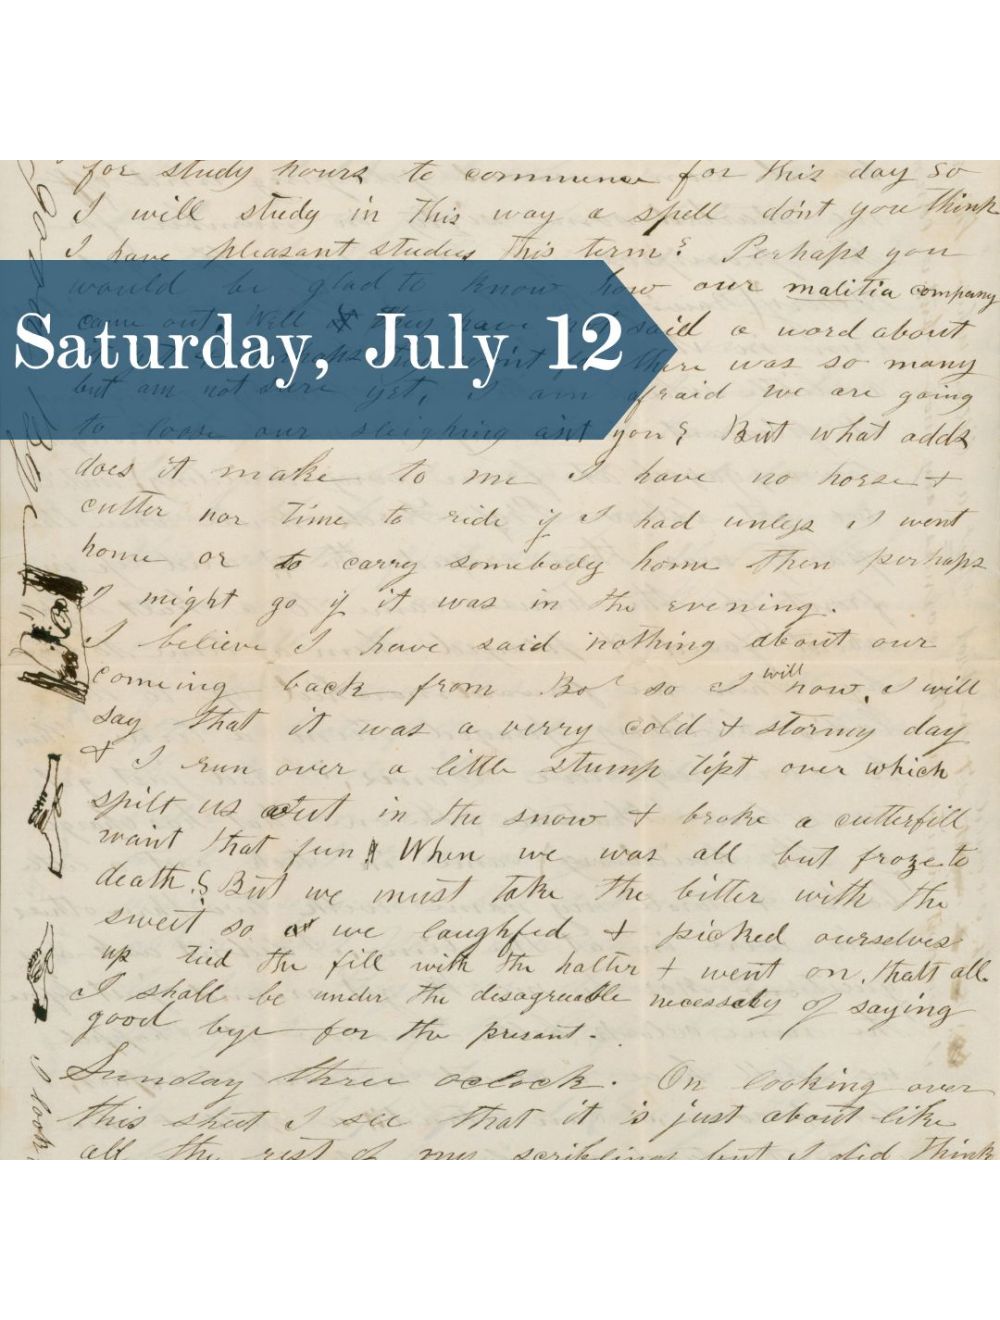 for study hours to commence for this day so
I will study in this way a spell don't you think
I have pleasant studies this term? Perhaps you
would be glad to know how our malitia company
came out. Well they have not said a word about
Saturday, July 12
there was so many
but am not sure yet, I am afraid we are going
to loose our sleighing aint you? But what odds
does it make to me I have no horse +
cutter nor time to ride if I had unless I went
home or to carry somebody home then perhaps
I might go if it was in the evening.
I believe I have said nothing about our
comeing back from Bo' so I will now. I will
say that it was a verry cold & stormy day
& I run over a little stump tipt over which
spilt us out in the snow + broke a cutterfill
want that fun When we was all but froze to
death? But we must take the bitter with the
sweet so we laughfed + picked ourselves
up tied the fill with the halter + went on, thatt all.
I shall be under the disagreeable necessaty of saying
good bye for the present.
Sunday three oclock. On looking over
this sheet I see that it is just about like
all the rest of my scribling but I did think
I look